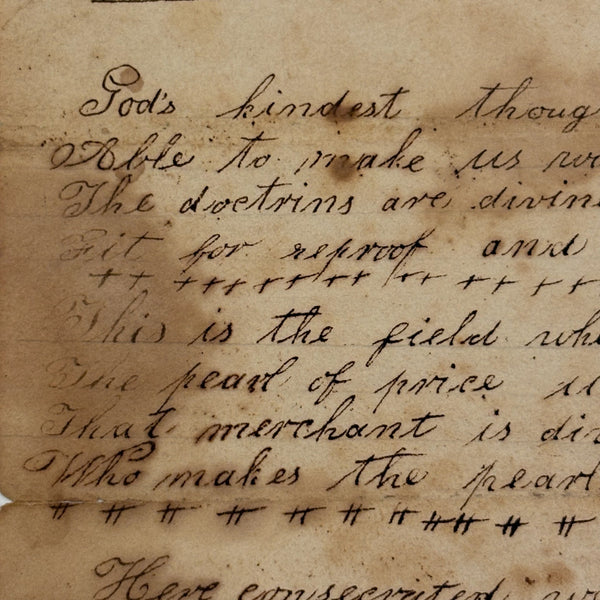 God's kindest thoug
Able to make us wo
The doctrins are divin
Fit for reproof and
This is the field whe
The pearl of price
That merchant is div
Who makes the pearl
Here consecrated wa